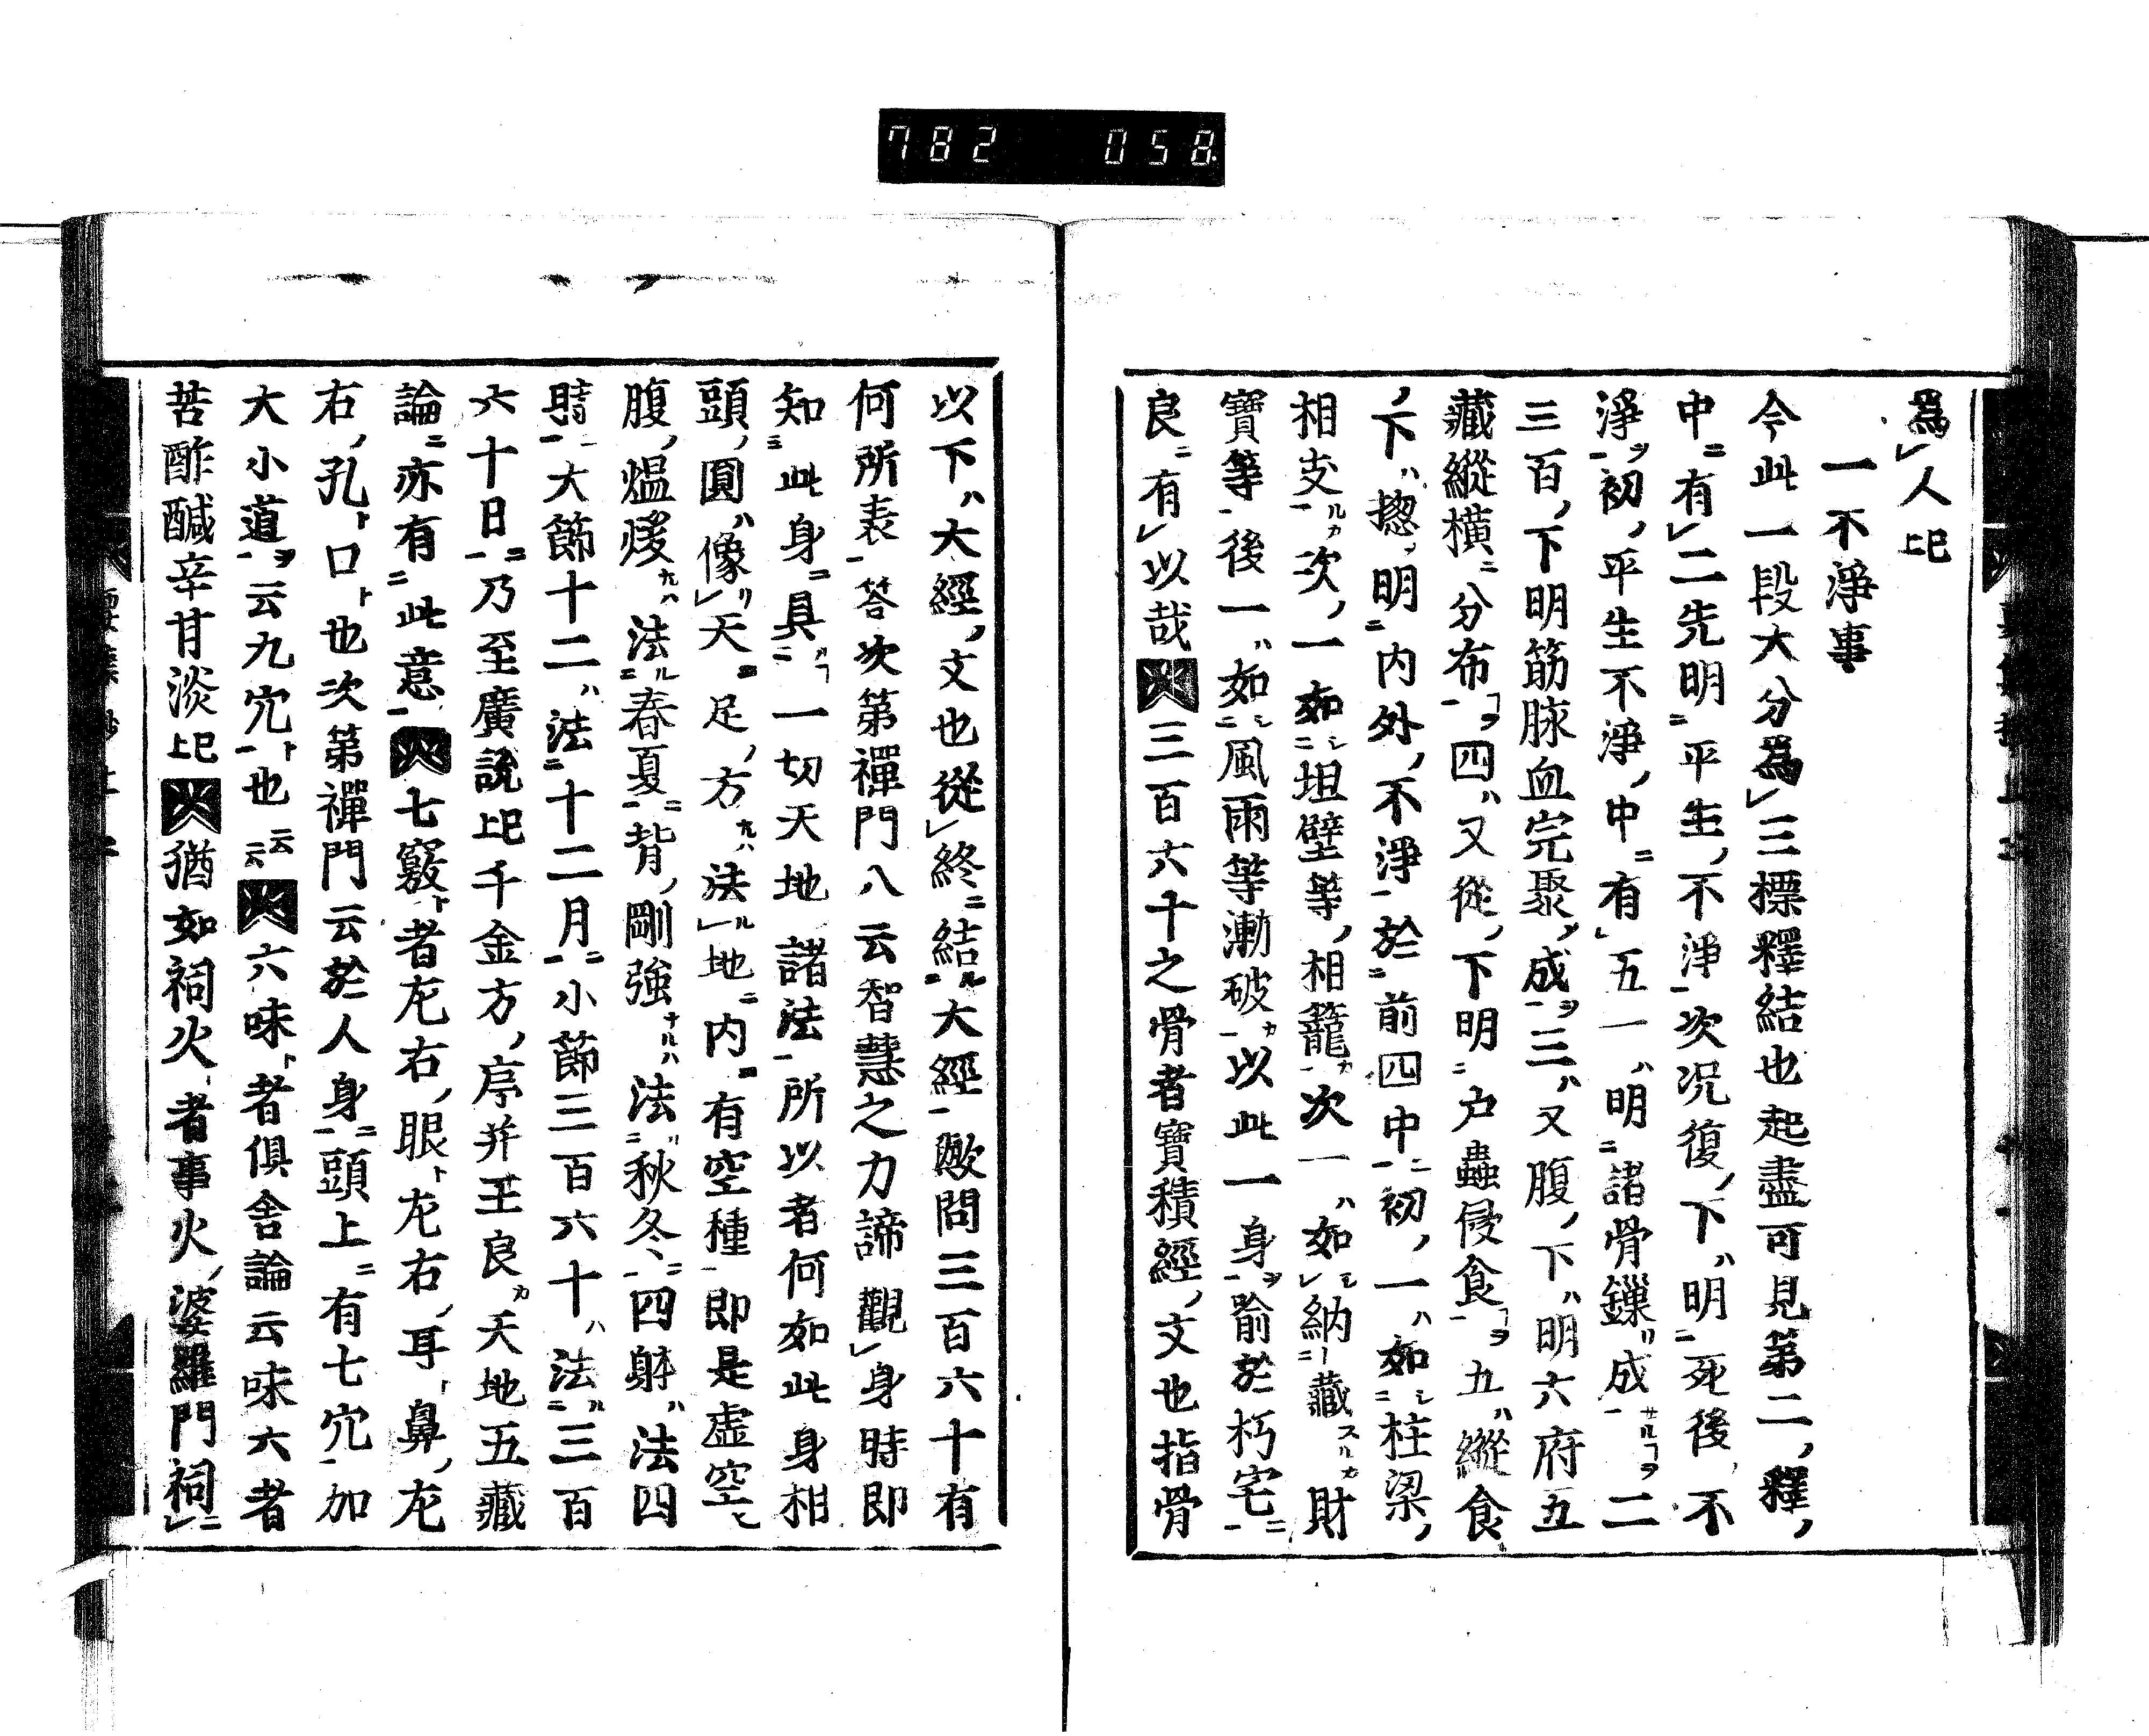 782 058
爲人 已上
一不淨事
今此一段大分爲三標釋結也起盡可見第二釋
中有二先明平生不淨次况復下明死後不
淨初平生不淨中有五一明諸骨鏁成二
三百下明筋脉血完聚成三又腹下明六府五
藏縱横分布四又從下明户蟲侵食五縱食
下揔明内外不淨於前四中初一如柱梁
相支次一如坦壁等相籠次一如納藏財
寶等後一如風雨等漸破以此一身喻於朽宅
良有以哉 三百六十之骨者寶積經文也指骨
以下大經文也從終結大經歟問三百六十有
何所表答次第禪門八云智慧之力諦觀身時即
知此身具一切天地諸法所以者何如此身相
頭圓像天足方法地内有空種即是虚空
腹煴煖法春夏背剛強法秋冬四躰法四
時大節十二法十二月小節三百六十法三百
六十日乃至廣説已上千金方序并王良天地五藏
論亦有此意 七竅者左右眼左右耳鼻左
右孔口也次第禪門云於人身頭上有七穴加
大小道云九穴也云云 六味者俱舎論云味六者
苦酢醎辛甘淡已上 猶如祠火者事火婆羅門祠